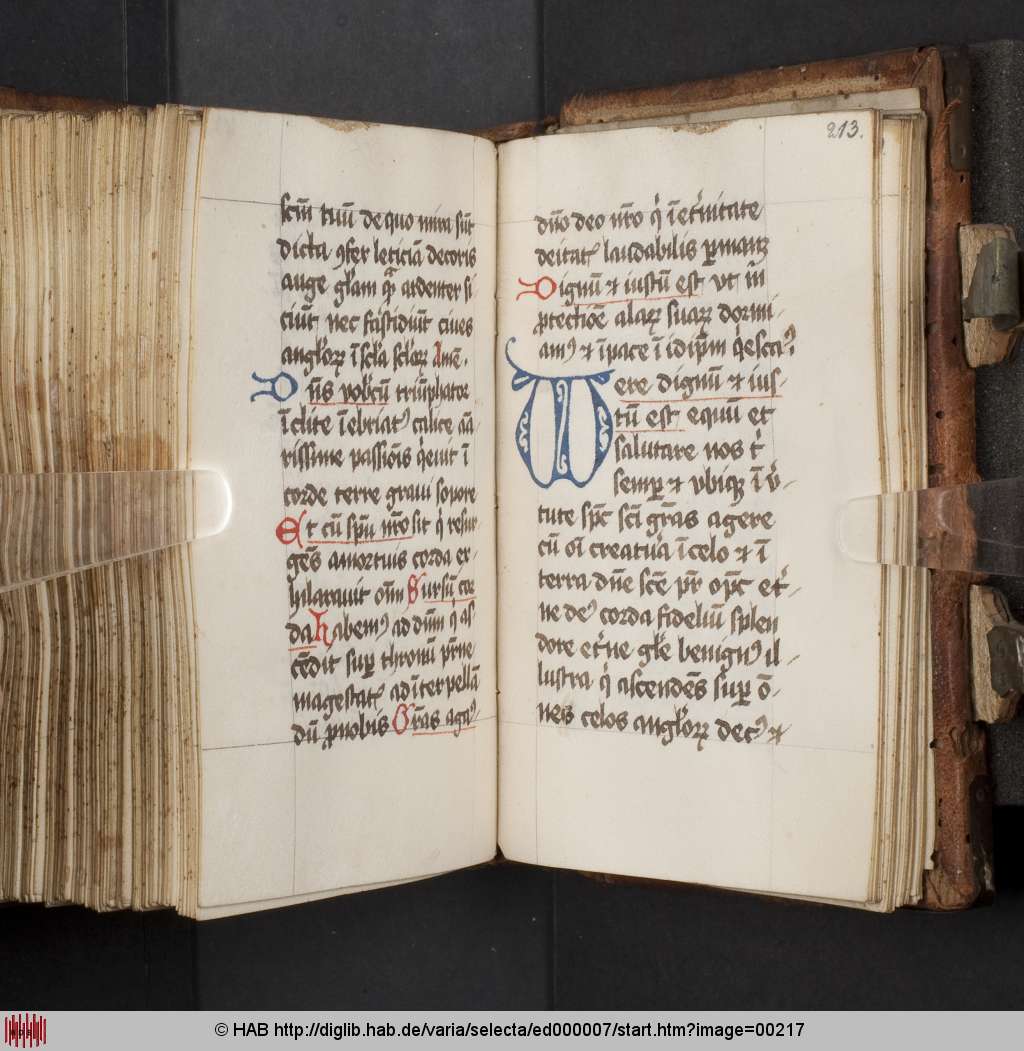 scm̄ tuū de quo mira sūt
dicta ꝯfer leticiā decoris
auge gl̄am ardenter si
ciūt nec fastidiūt ciues
angl̓oꝝ ī scl̓a scl̓oꝝ Amē.
Dn̄s vobcū triūphator
īclite īebriatꝰ calice
rissime passiōis ī
corde terre graui sopore
Et cū spū nr̄o sit q̓ resur
gēs amortuis corda ex-
hilarauit om̄ Sursū cor
da habemꝰ ad dūm q̓ as
cēdit suꝑ thronū
magestat᷒ ad īterpellā
dū ꝓ nobis Gr̄as agaꝰ
213.
dn̄o deo nr̄o q̓ ī et̓nitate
deitat᷒ laudabilis ꝑmanꝫ
Dignū ⁊ iustū est vt
ꝓtectiōe alaꝝ suaꝝ dormi-
amꝰ ⁊ ī pace ī idip̄m
Uere dignū ⁊ ius-
tū est equū et
salutare nos t̓
semꝑ ⁊ vbiqꝫ ī v̓-
tute sp̄c sc̄i gr̄as agere
cū oī creatura ī celo ⁊ ī
terra dn̄e sc̄e pr̄ op̄c et̓-
ne deꝰ corda fideliū splen
dore et̓ne gl̓e benignꝰ il-
lustra q̓ ascendēs suꝑ ō-
neis celos angl̓oꝝ decꝰ ⁊
© HAB http://diglib.hab.de/varia/selecta/ed000007/start.htm?image=00217